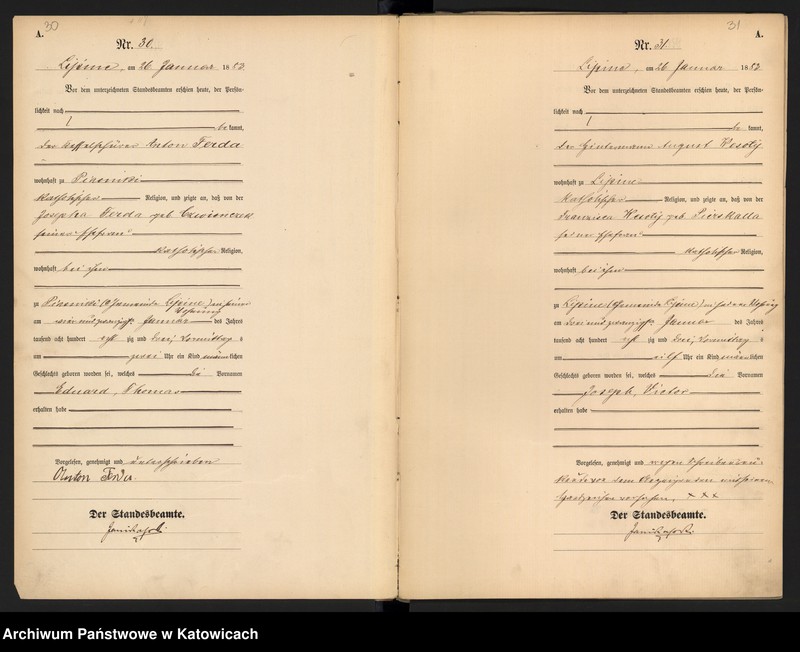 30
A.
Nr. 30.
Lipine, am 26. Januar 1883.
Vor dem unterzeichneten Standesbeamten erschien heute, der Persön-
lichkeit nach
be kannt,
der Anton Ferda
wohnhaft zu Piasniki
katholischer Religion, und zeigte an, daß von der
Josepha Ferda geb.
seiner Ehefrau
katholischer Religion,
wohnhaft bei ihm
zu Piasniki (Gemeinde Lipine) in seiner
Wohnung
am vier und zwanzigsten Januar des Jahres
tausend acht hundert acht zig und drei, Vormittag s
um zwei Uhr ein Kind männlichen
Geschlechts geboren worden sei, welches die Vornamen
Eduard, Thomas
erhalten habe
Vorgelesen, genehmigt und unterschrieben
Anton Ferda.
Der Standesbeamte.
31
A.
Nr. 31.
Lipine, am 26. Januar 1883.
Vor dem unterzeichneten Standesbeamten erschien heute, der Persön-
lichkeit nach
be kannt,
der August Wesoly
wohnhaft zu Lipine
katholischer Religion, und zeigte an, daß von der
Franzisca Wesoly geb.
seiner Ehefrau
katholischer Religion,
wohnhaft bei ihm
zu Lipine (Gemeinde Lipine) in seiner Wohnung
am drei und zwanzigsten Januar des Jahres
tausend acht hundert acht zig und drei, Vormittag s
um elf Uhr ein Kind männlichen
Geschlechts geboren worden sei, welches die Vornamen
Joseph, Victor
erhalten habe
Vorgelesen, genehmigt und wegen Schreibensun-
kunde von dem Anzeigenden mit seinem
Handzeichen versehen. × × ×
Der Standesbeamte.
Archiwum Państwowe w Katowicach